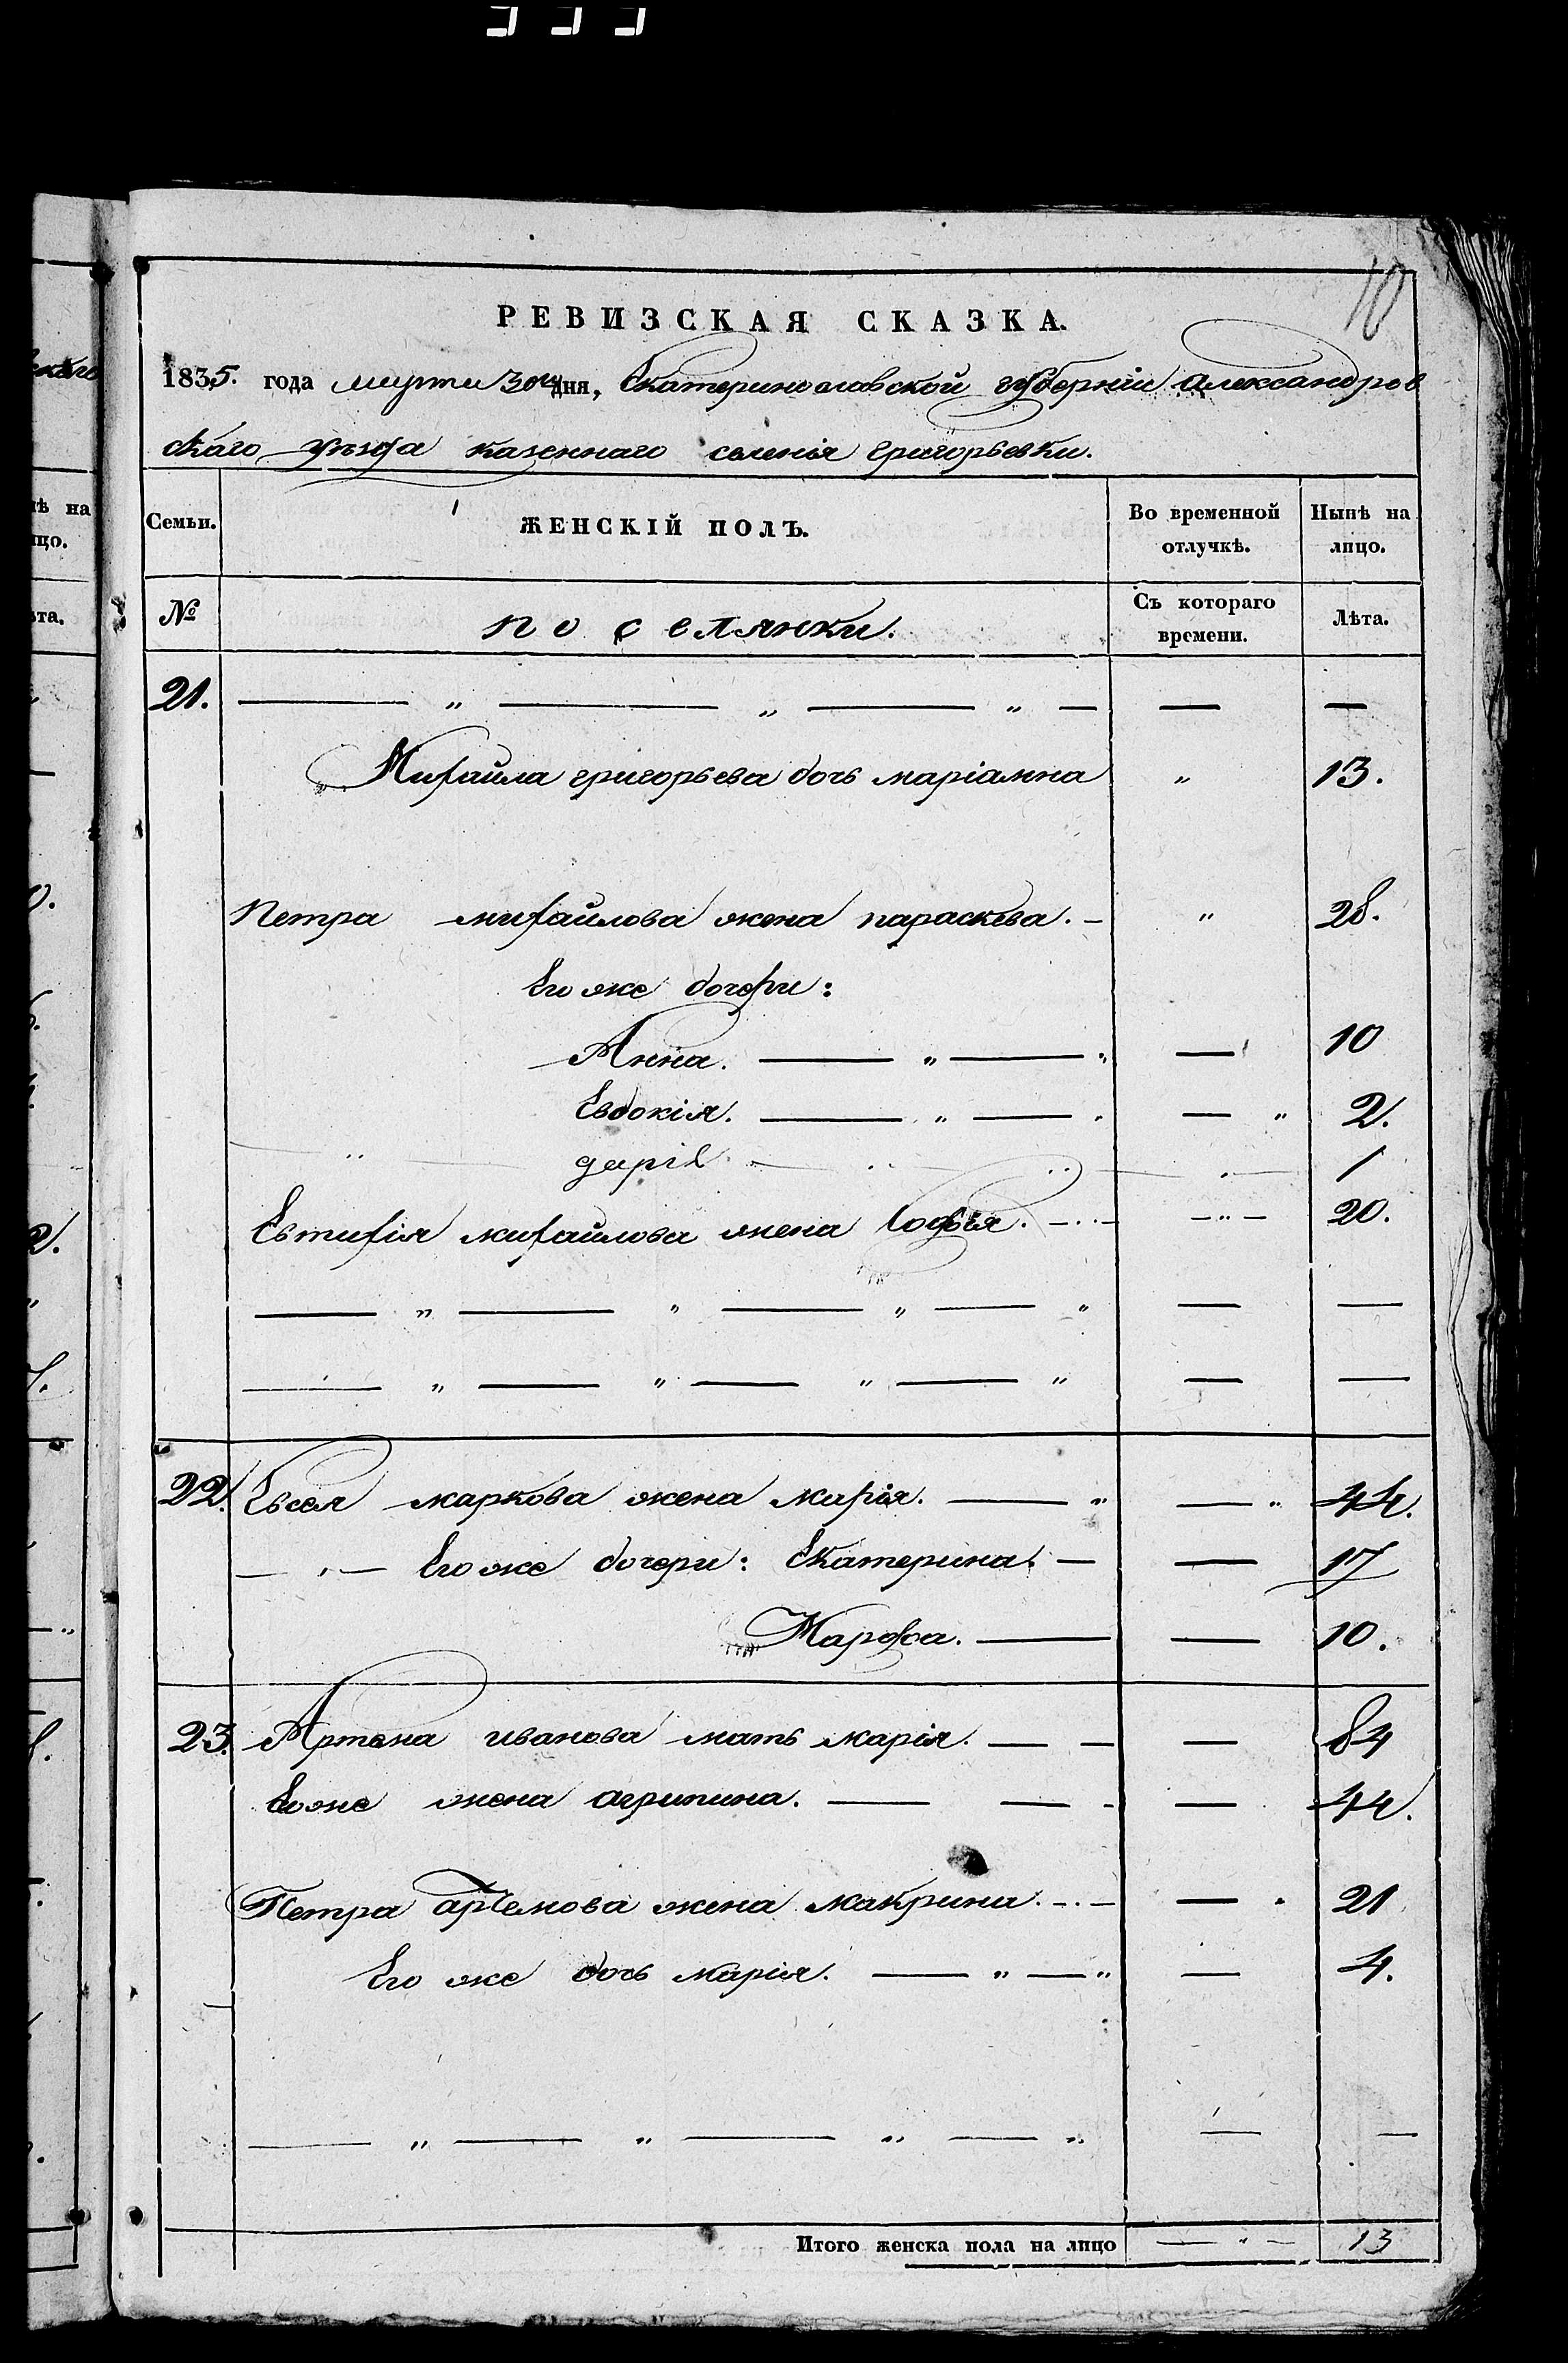 10
РЕВИЗСКАЯ СКАЗКА.
1835. года марта 30го дня, Екатеринославской губерніи Александров
скаго уезда казеннаго селенія Григорьевки.
Семьи. ЖЕНСКІЙ ПОЛЪ. Во временной отлучкѣ. Нынѣ на лицо.
№ поселянки. Съ котораго времени. Лѣта.
21. — „ — „ — „ — — —
Михайла григорьева дочь маріамна „ 13.
Петра михайлова жена параскева. — „ 28.
Его же дочери:
Анна. — „ — „ — 10
Евдокія. — „ — „ — „ 2.
дарія — 1
Евтифія михайлова жена Софія. — „ — 20.
— „ — „ — „ — „ — —
— „ — „ — „ — „ — —
22. Евсея маркова жена марія. — „ — „ 44.
— „ — Его же дочери: Екатерина. — — 17
Марфа. — — 10.
23. Артема иванова мать марія. — — — 84
Его же жена агрипина. — — — 44.
Петра артемова жена макрина. — — 21
Его же дочь марія. — „ — „ — 4.
— „ — „ — „ — „ — —
Итого женска пола на лицо — „ — 13